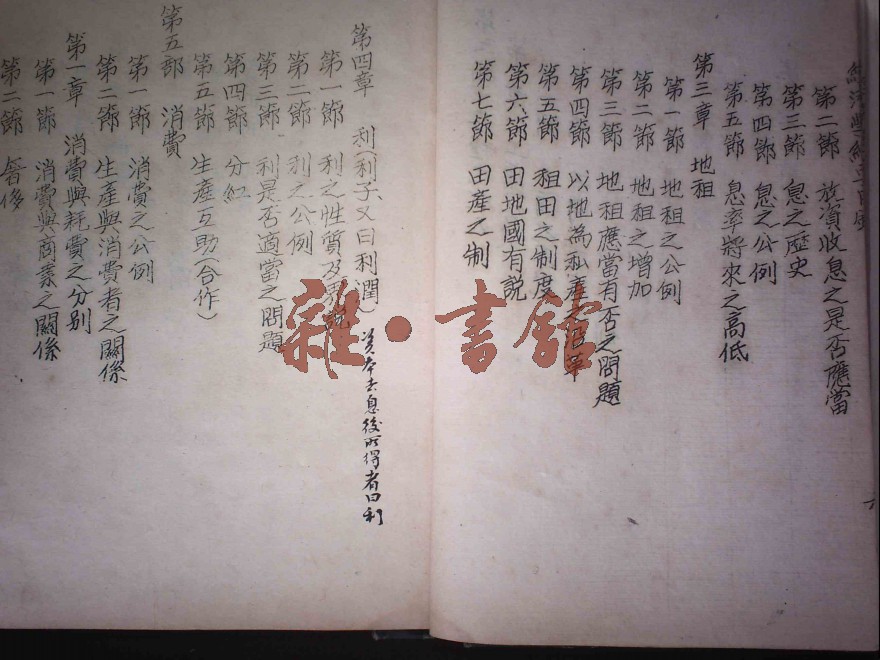 第二節 放資收息之是否應當
第三節 息之歷史
第四節 息之公例
第五節 息率將來之高低
第三章 地租
第一節 地租之公例
第二節 地租之增加
第三節 地租應當有否之問題
第四節 以地為私產之沿革
第五節 租田之制度
第六節 田地國有説
第七節 田產之制
第四章 利(利子又曰利潤) 資本去息後所得者曰利
第一節 利之性質及
第二節 利之公例
第三節 利是否適當之問題
第四節 分紅
第五節 生產互助(合作)
第五部 消費
第一節 消費之公例
第二節 生產與消費者之關係
第一章 消費與耗費之分别
第一節 消費與商業之關係
第二節 奢侈
雜·書館